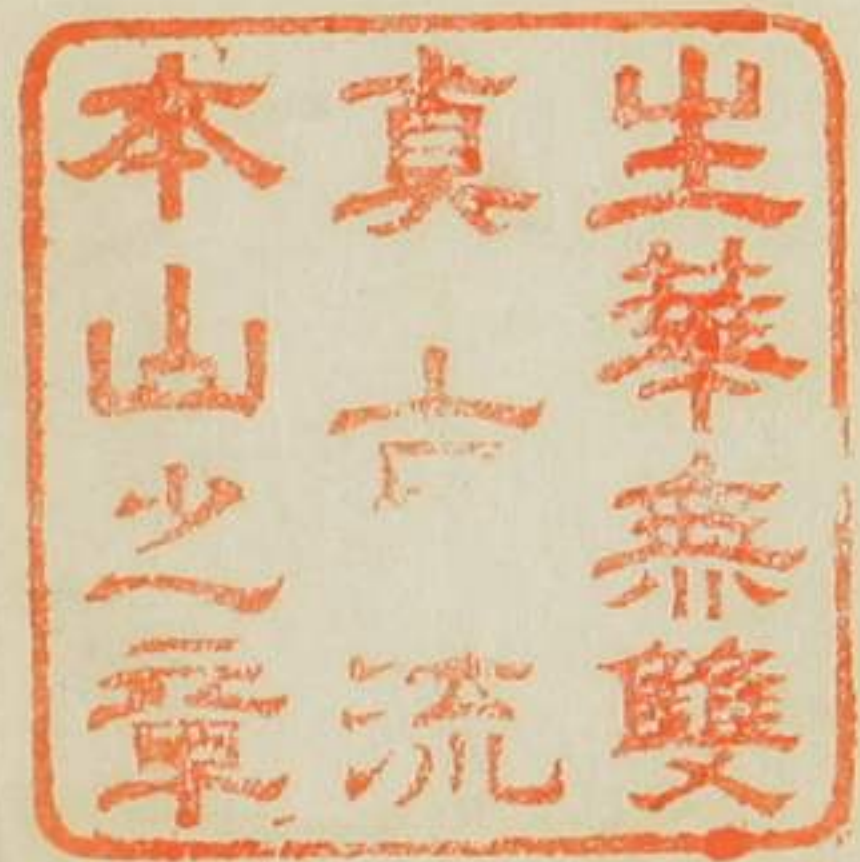 生華無雙
真古流
本山之章